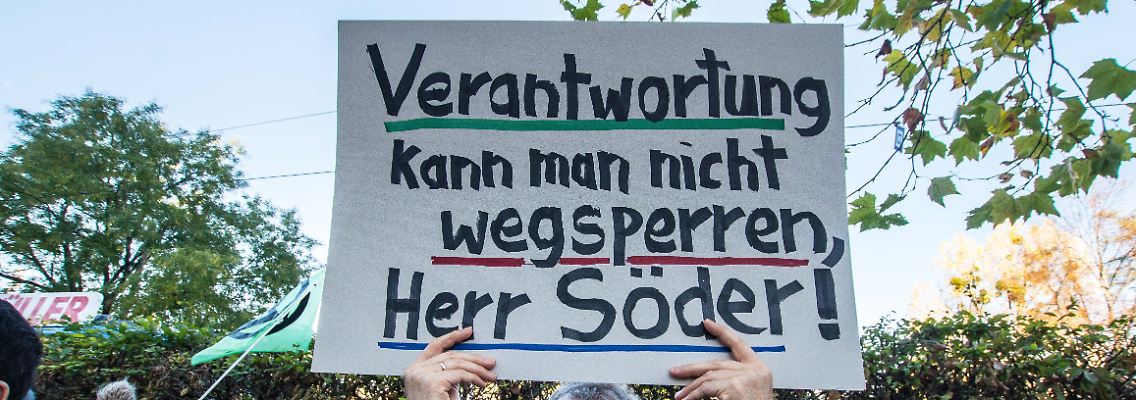 Verantwortung
kann man nicht
wegsperren,
Herr Söder!